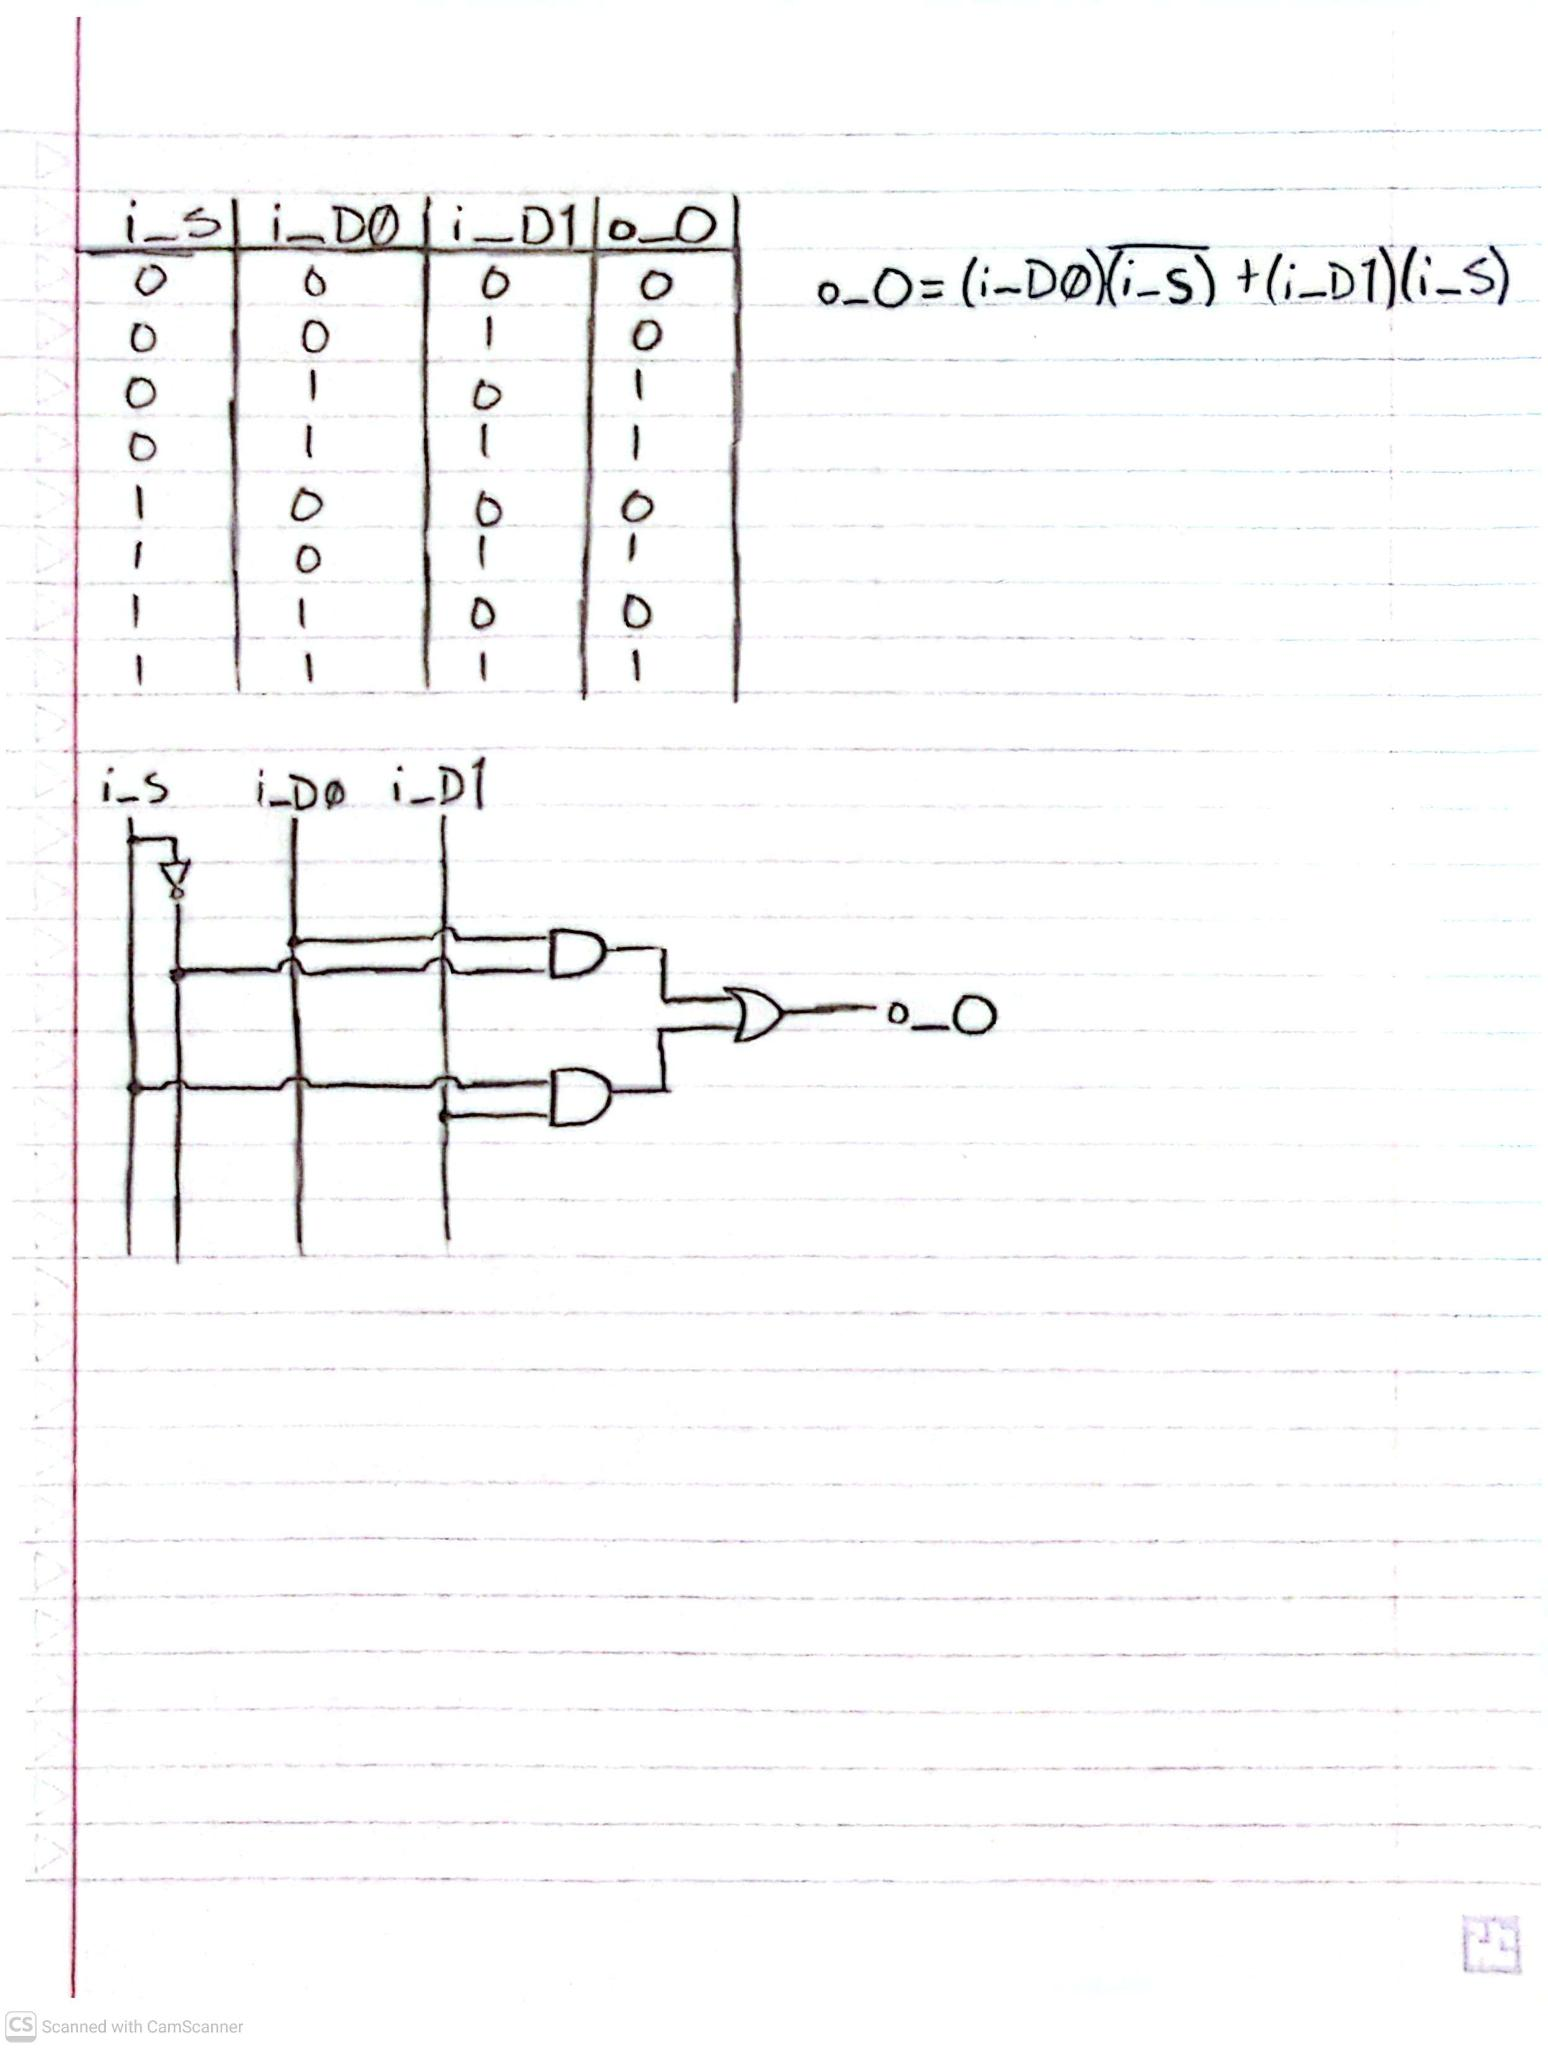 i_S i_D0 i_D1 o_O
0 0 0 0
0 0 1 0
0 1 0 1
0 1 1 1
1 0 0 0
1 0 1 1
1 1 0 0
1 1 1 1
o_O = (i_D0)(i̅_̅S̅) + (i_D1)(i_S)
i_S i_D0 i_D1
o_O
CS Scanned with CamScanner